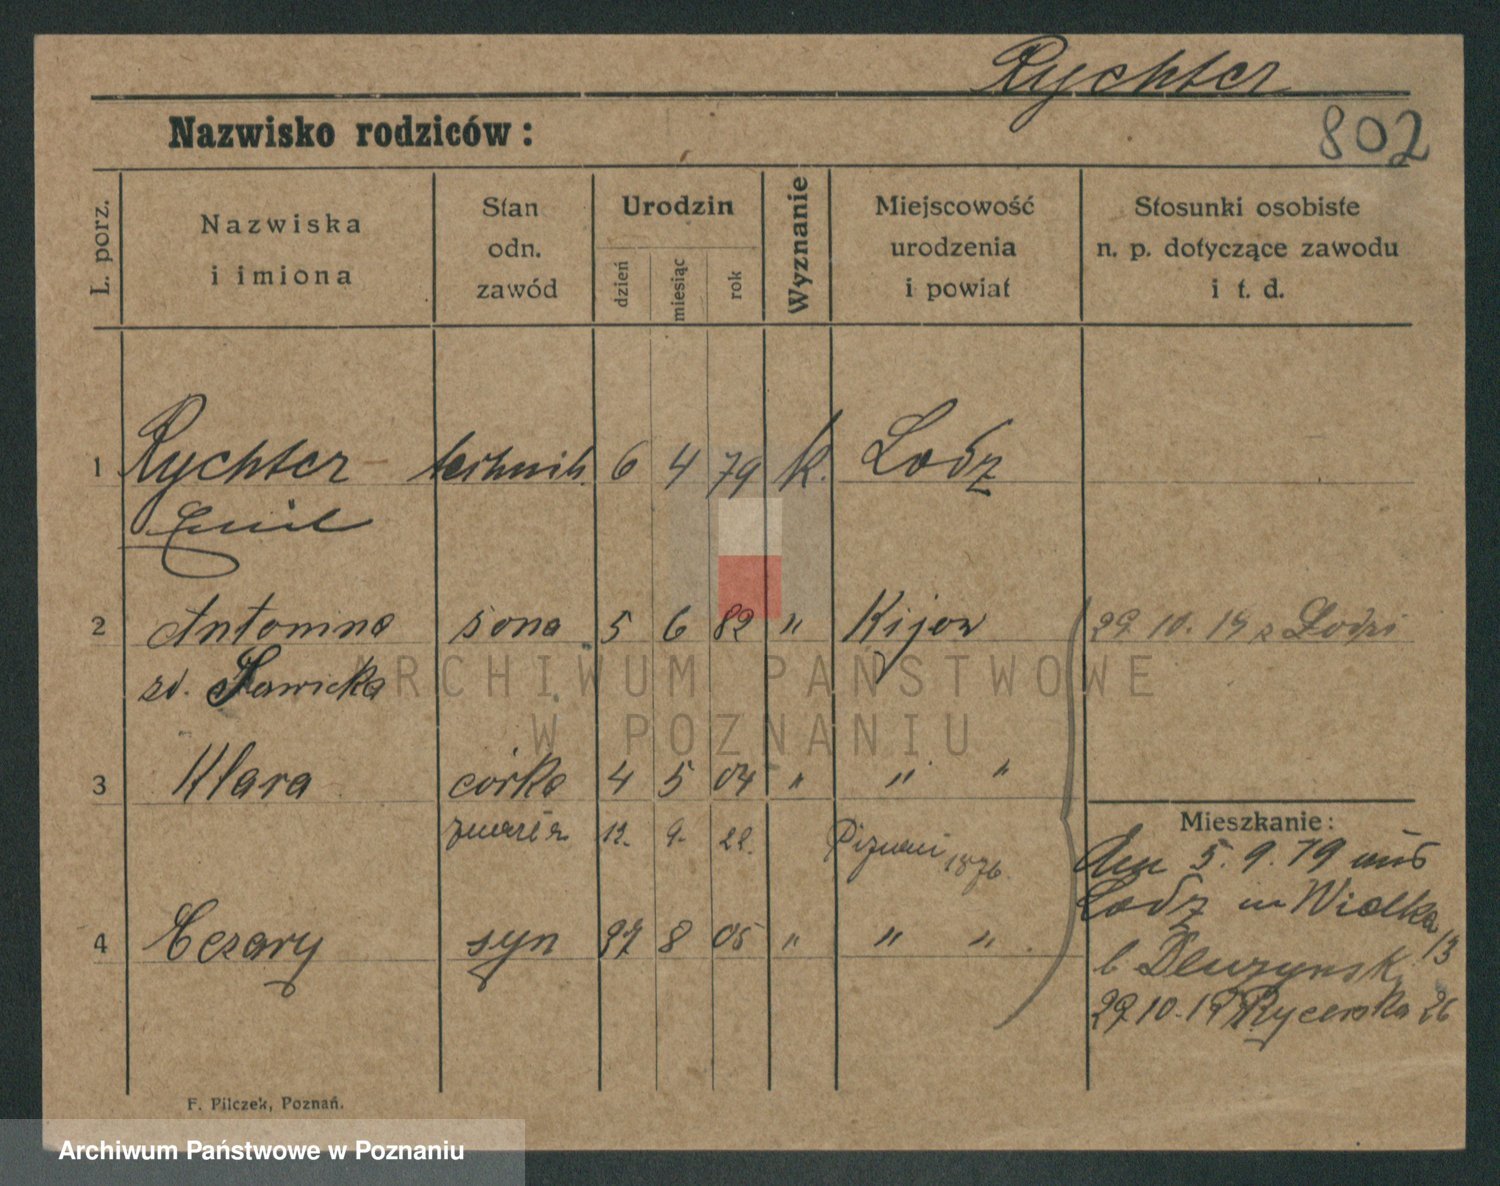 Rychter
802
Nazwisko rodziców:
L. porz.
Nazwiska
i imiona
Stan
odn.
zawód
Urodzin
dzień
miesiąc
rok
Wyznanie
Miejscowość
urodzenia
i powiat
Stosunki osobiste
n. p. dotyczące zawodu
i t. d.
1 Rychter technik. 6 4 79 k. Lodz
Emil
2 Antonina żona 5 6 82 " Kijow 29. 10. 19 z Lodzi
zd. Sawicka
3 Klara córka 4 5 04 " " "
zmarła 12. 9. 22. 1876.
Mieszkanie:
5. 9. 19 aus
Lodz in Wielka
13
4 Cezary syn 27 8 05 " " " .
b
29.10.19 Rycerska 26
F. Pilczek, Poznań.
ARCHIWUM PAŃSTWOWE
W POZNANIU
Archiwum Państwowe w Poznaniu